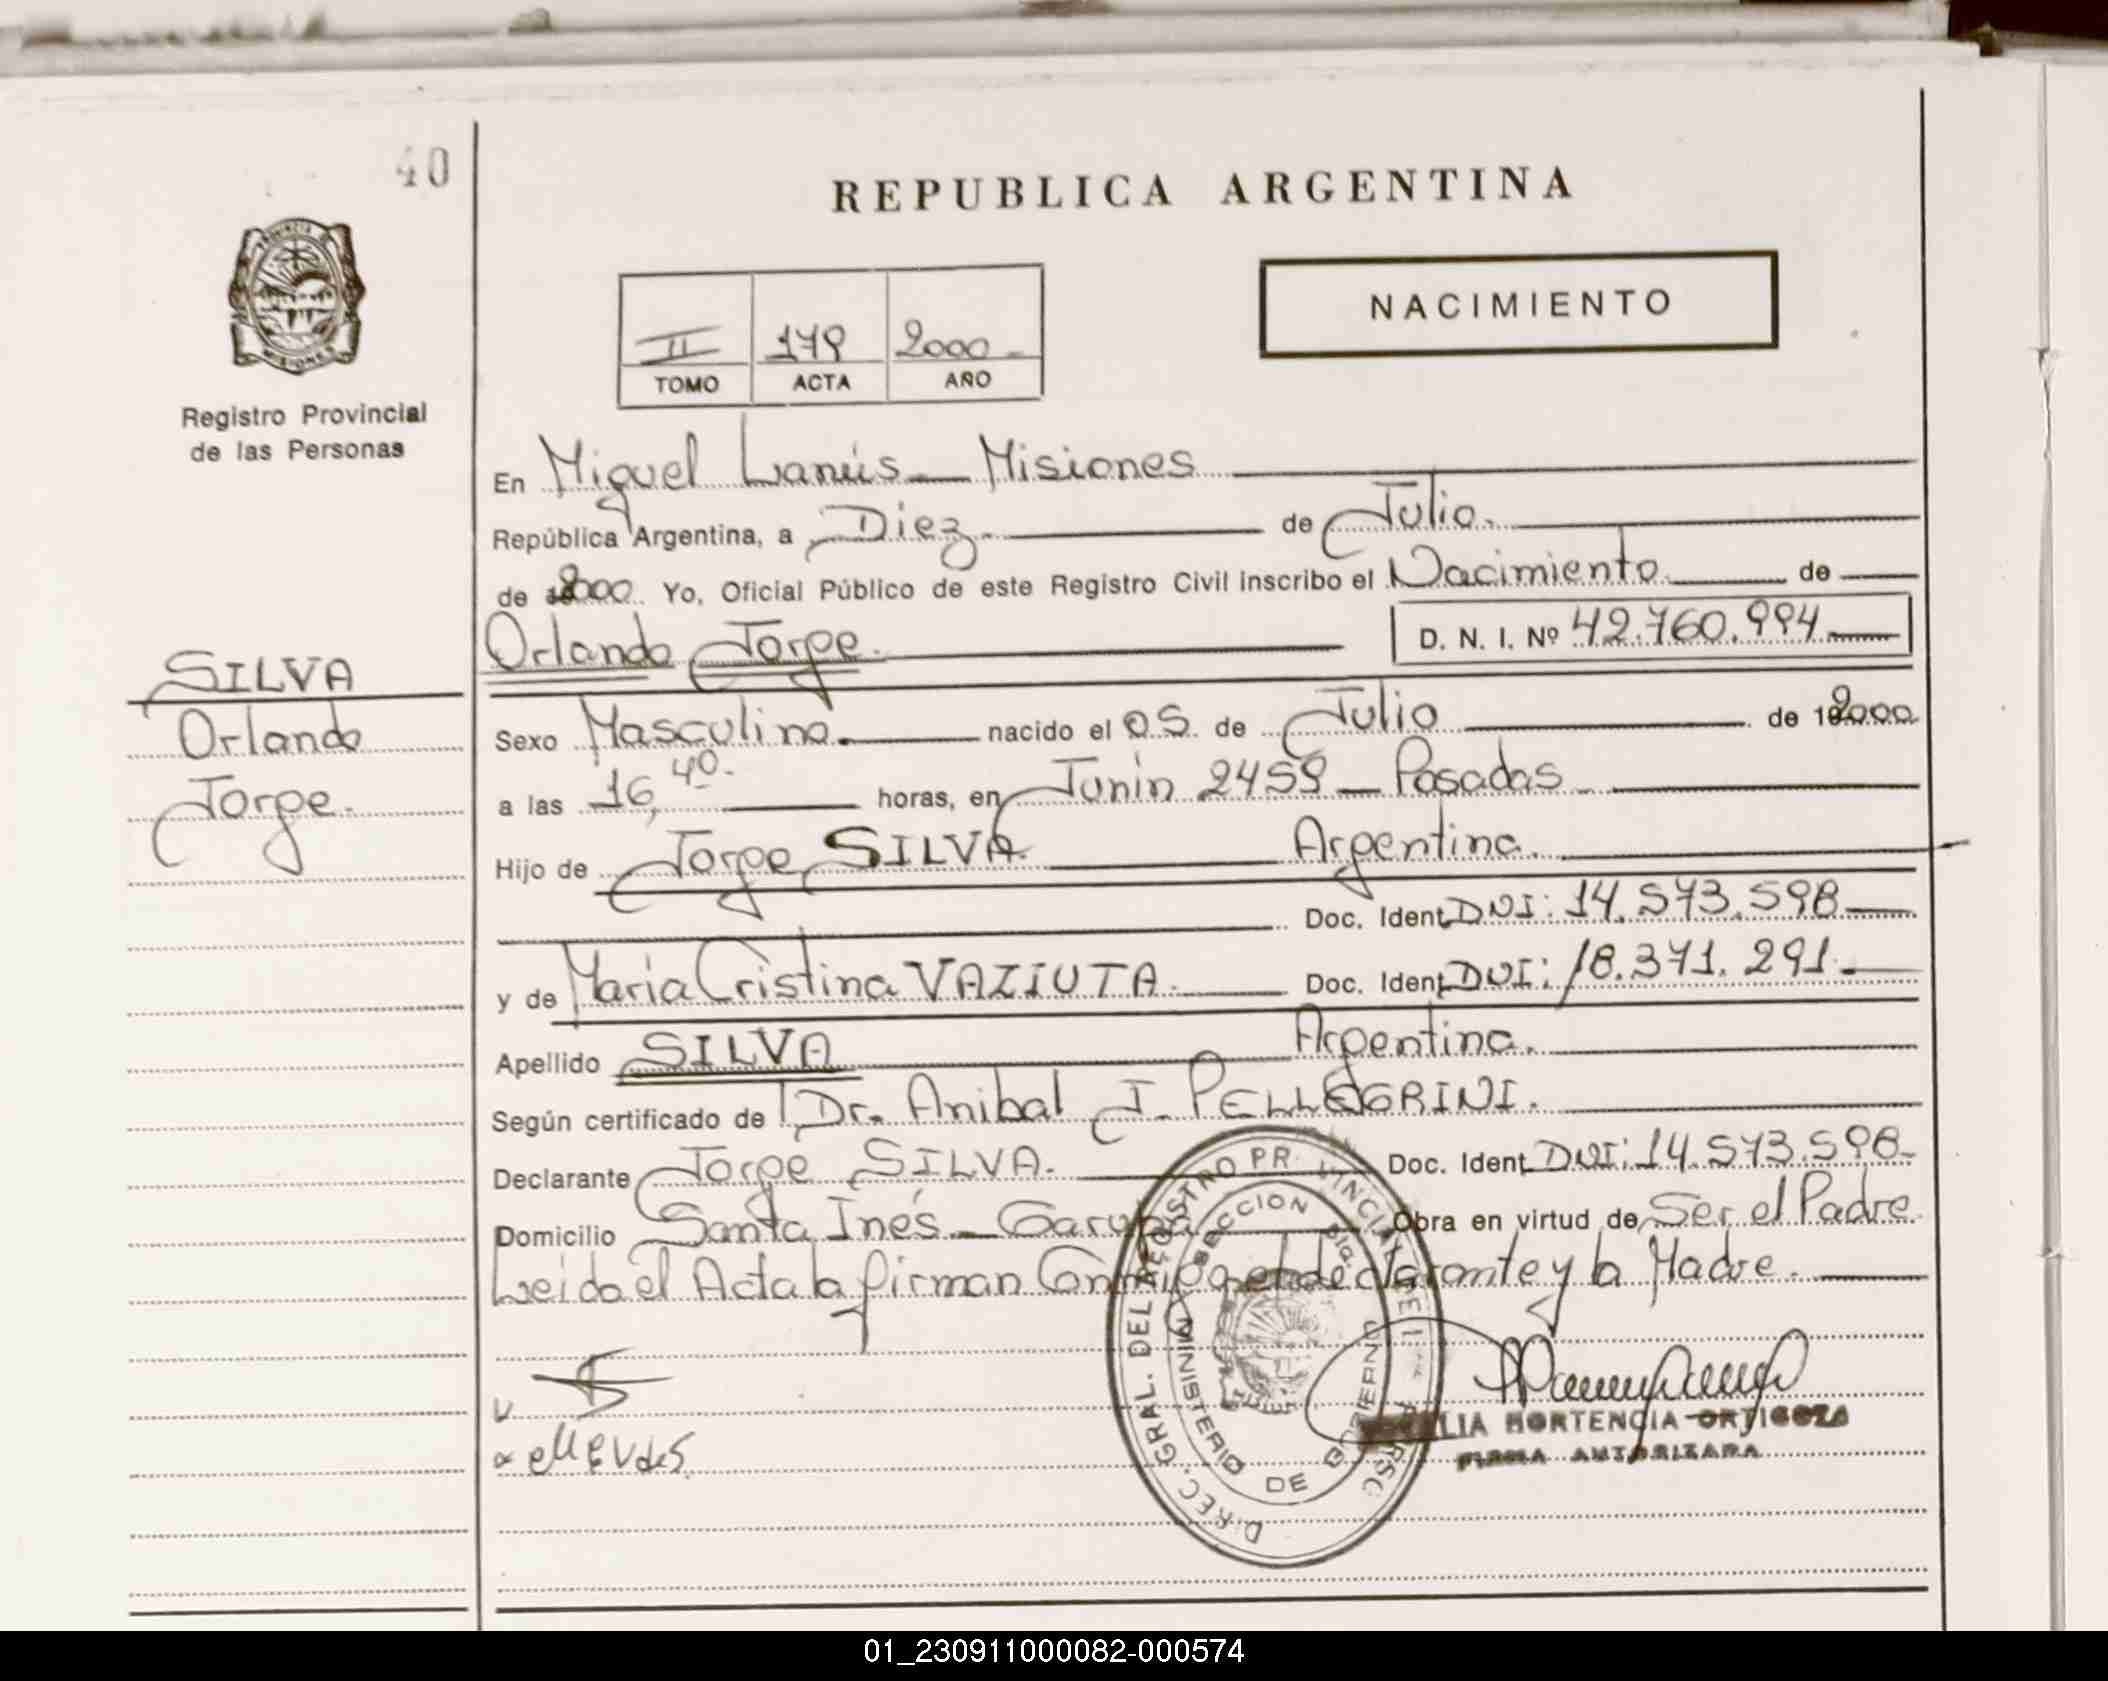 40
REPUBLICA ARGENTINA
NACIMIENTO
II 179 2000
TOMO ACTA AÑO
Registro Provincial
de las Personas
En Miguel Lanús - Misiones
República Argentina, a Diez de Julio.
de 2000 Yo, Oficial Público de este Registro Civil inscribo el Nacimiento de
Orlando Jorge. D. N. I. Nº 42.760.994
SILVA
Orlando
Jorge.
Sexo Masculino. nacido el 05 de Julio de 2000
a las 16,40- horas, en Junin 2459 - Posadas
Hijo de Jorge SILVA Argentina.
Doc. Ident. DNI: 14.573.598
y de Maria Cristina VAZIUTA. Doc. Ident. DNI: 18.371.291.
Apellido SILVA Argentina.
Según certificado de Dr. Anibal J. PELLEGRINI.
Declarante Jorge SILVA. Doc. Ident. DNI: 14.573.598-
Domicilio Santa Inés - Garupá Obra en virtud de Ser el Padre
Leida el Acta la firman Conmigo el declarante y la Madre.
DIREC. GRAL. DEL REGISTRO PROVINCIAL DE
MINISTERIO DE GOBIERNO
SECCION
HORTENCIA ORTIGOZA
FIRMA AUTORIZADA
01_230911000082-000574